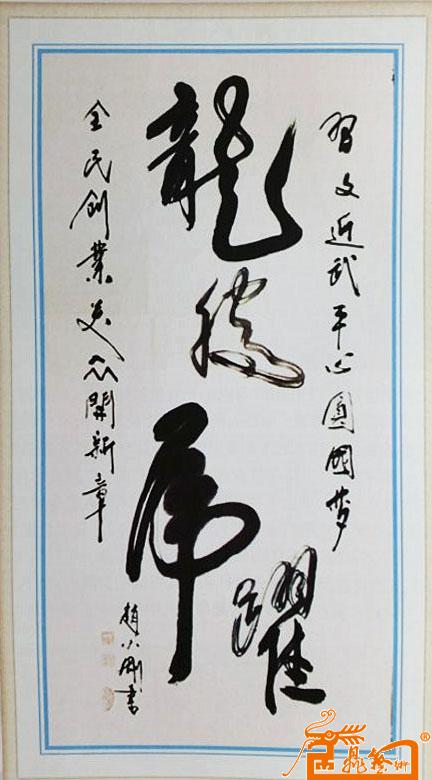 習文近武平心圓國夢
龍騰虎躍
全民創業笑众開新章
趙小剛書